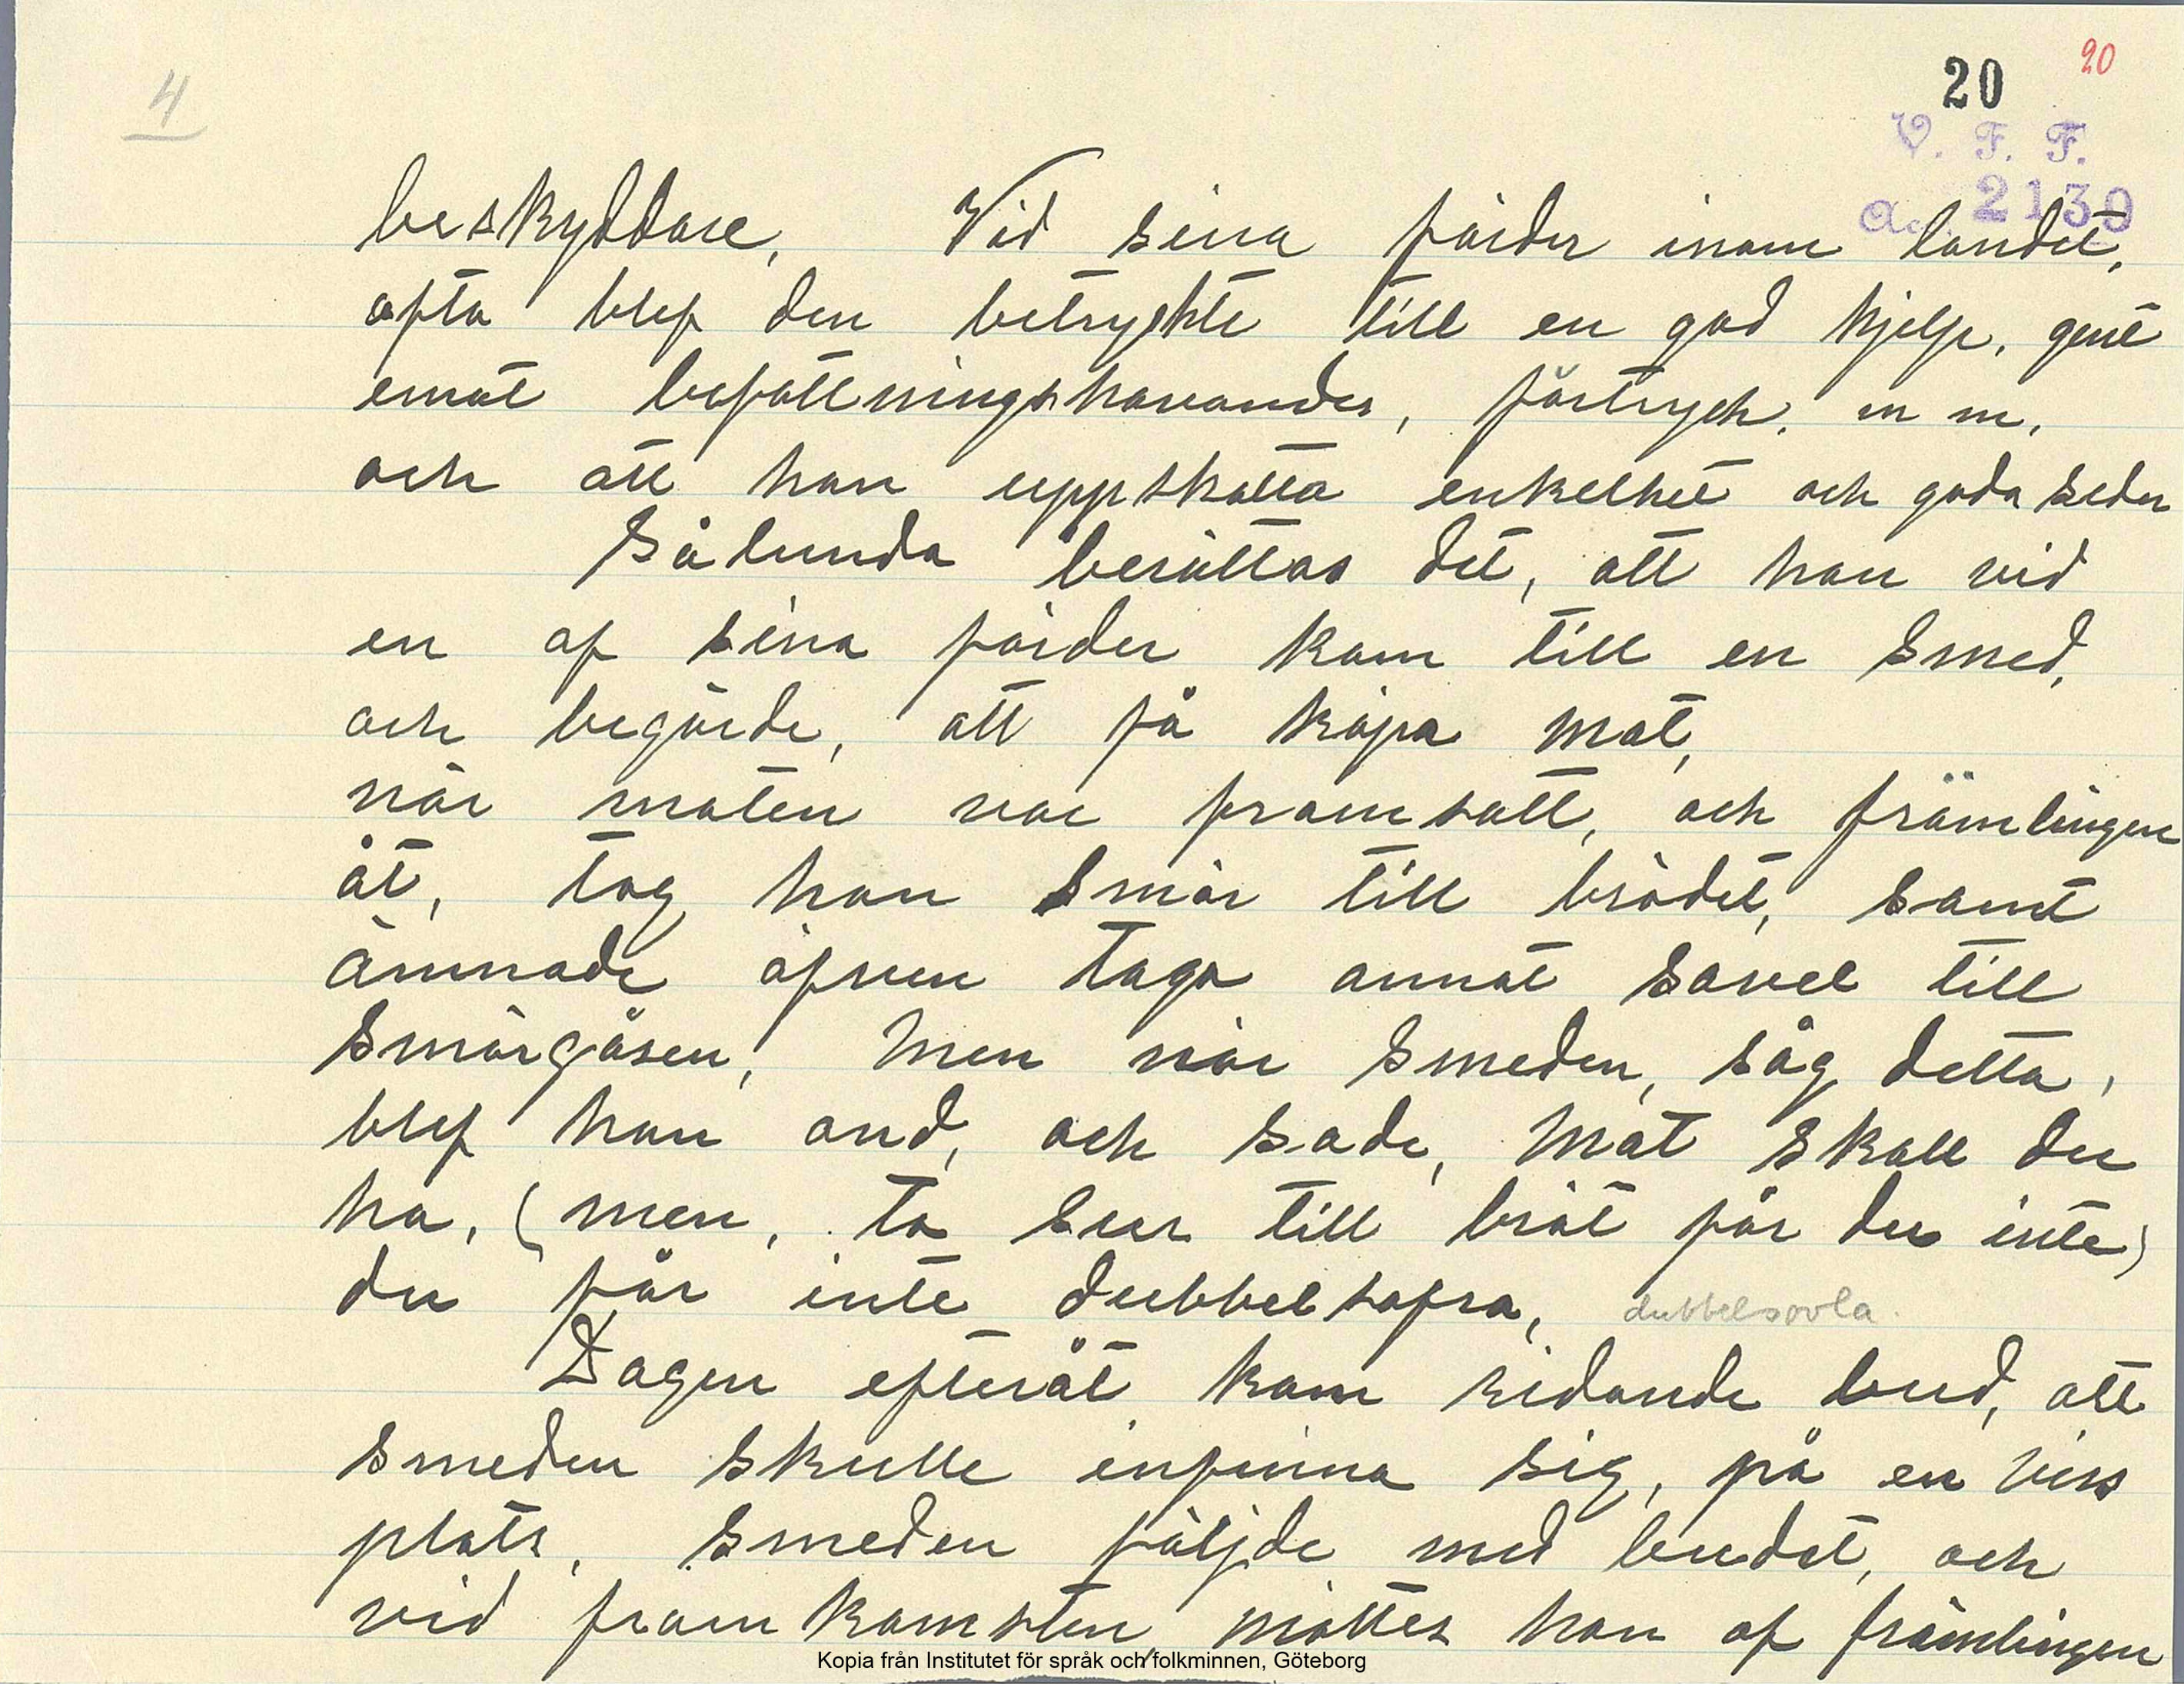 4
20 20
V. F. F.
Acc. 2139
beskyddare, Vid sina färder inom landet,
ofta blef den betryckte till en god hjelp, gent
emot befattningshavandes, förtryck, m m,
och att han uppskatta enkelhet och goda seder
Sålunda berättas det, att han vid
en af sina färder kom till en smed,
och begärde, att få köpa mat,
när maten var framsatt, och främlingen
åt, tog han smör till brödet, samt
ämnade äfven taga annat sovel till
smörgåsen, Men när smeden, såg detta,
blef han ond, och sade, Mat skall du
ha, (men, ta sur till bröt får du inte)
du får inte dubbelsofra, dubbelsovla.
Dagen efteråt kom ridande bud, att
smeden skulle infinna sig, på en viss
plats, smeden följde med budet, och
vid framkomsten, möttes han af främlingen
Kopia från Institutet för språk och folkminnen, Göteborg